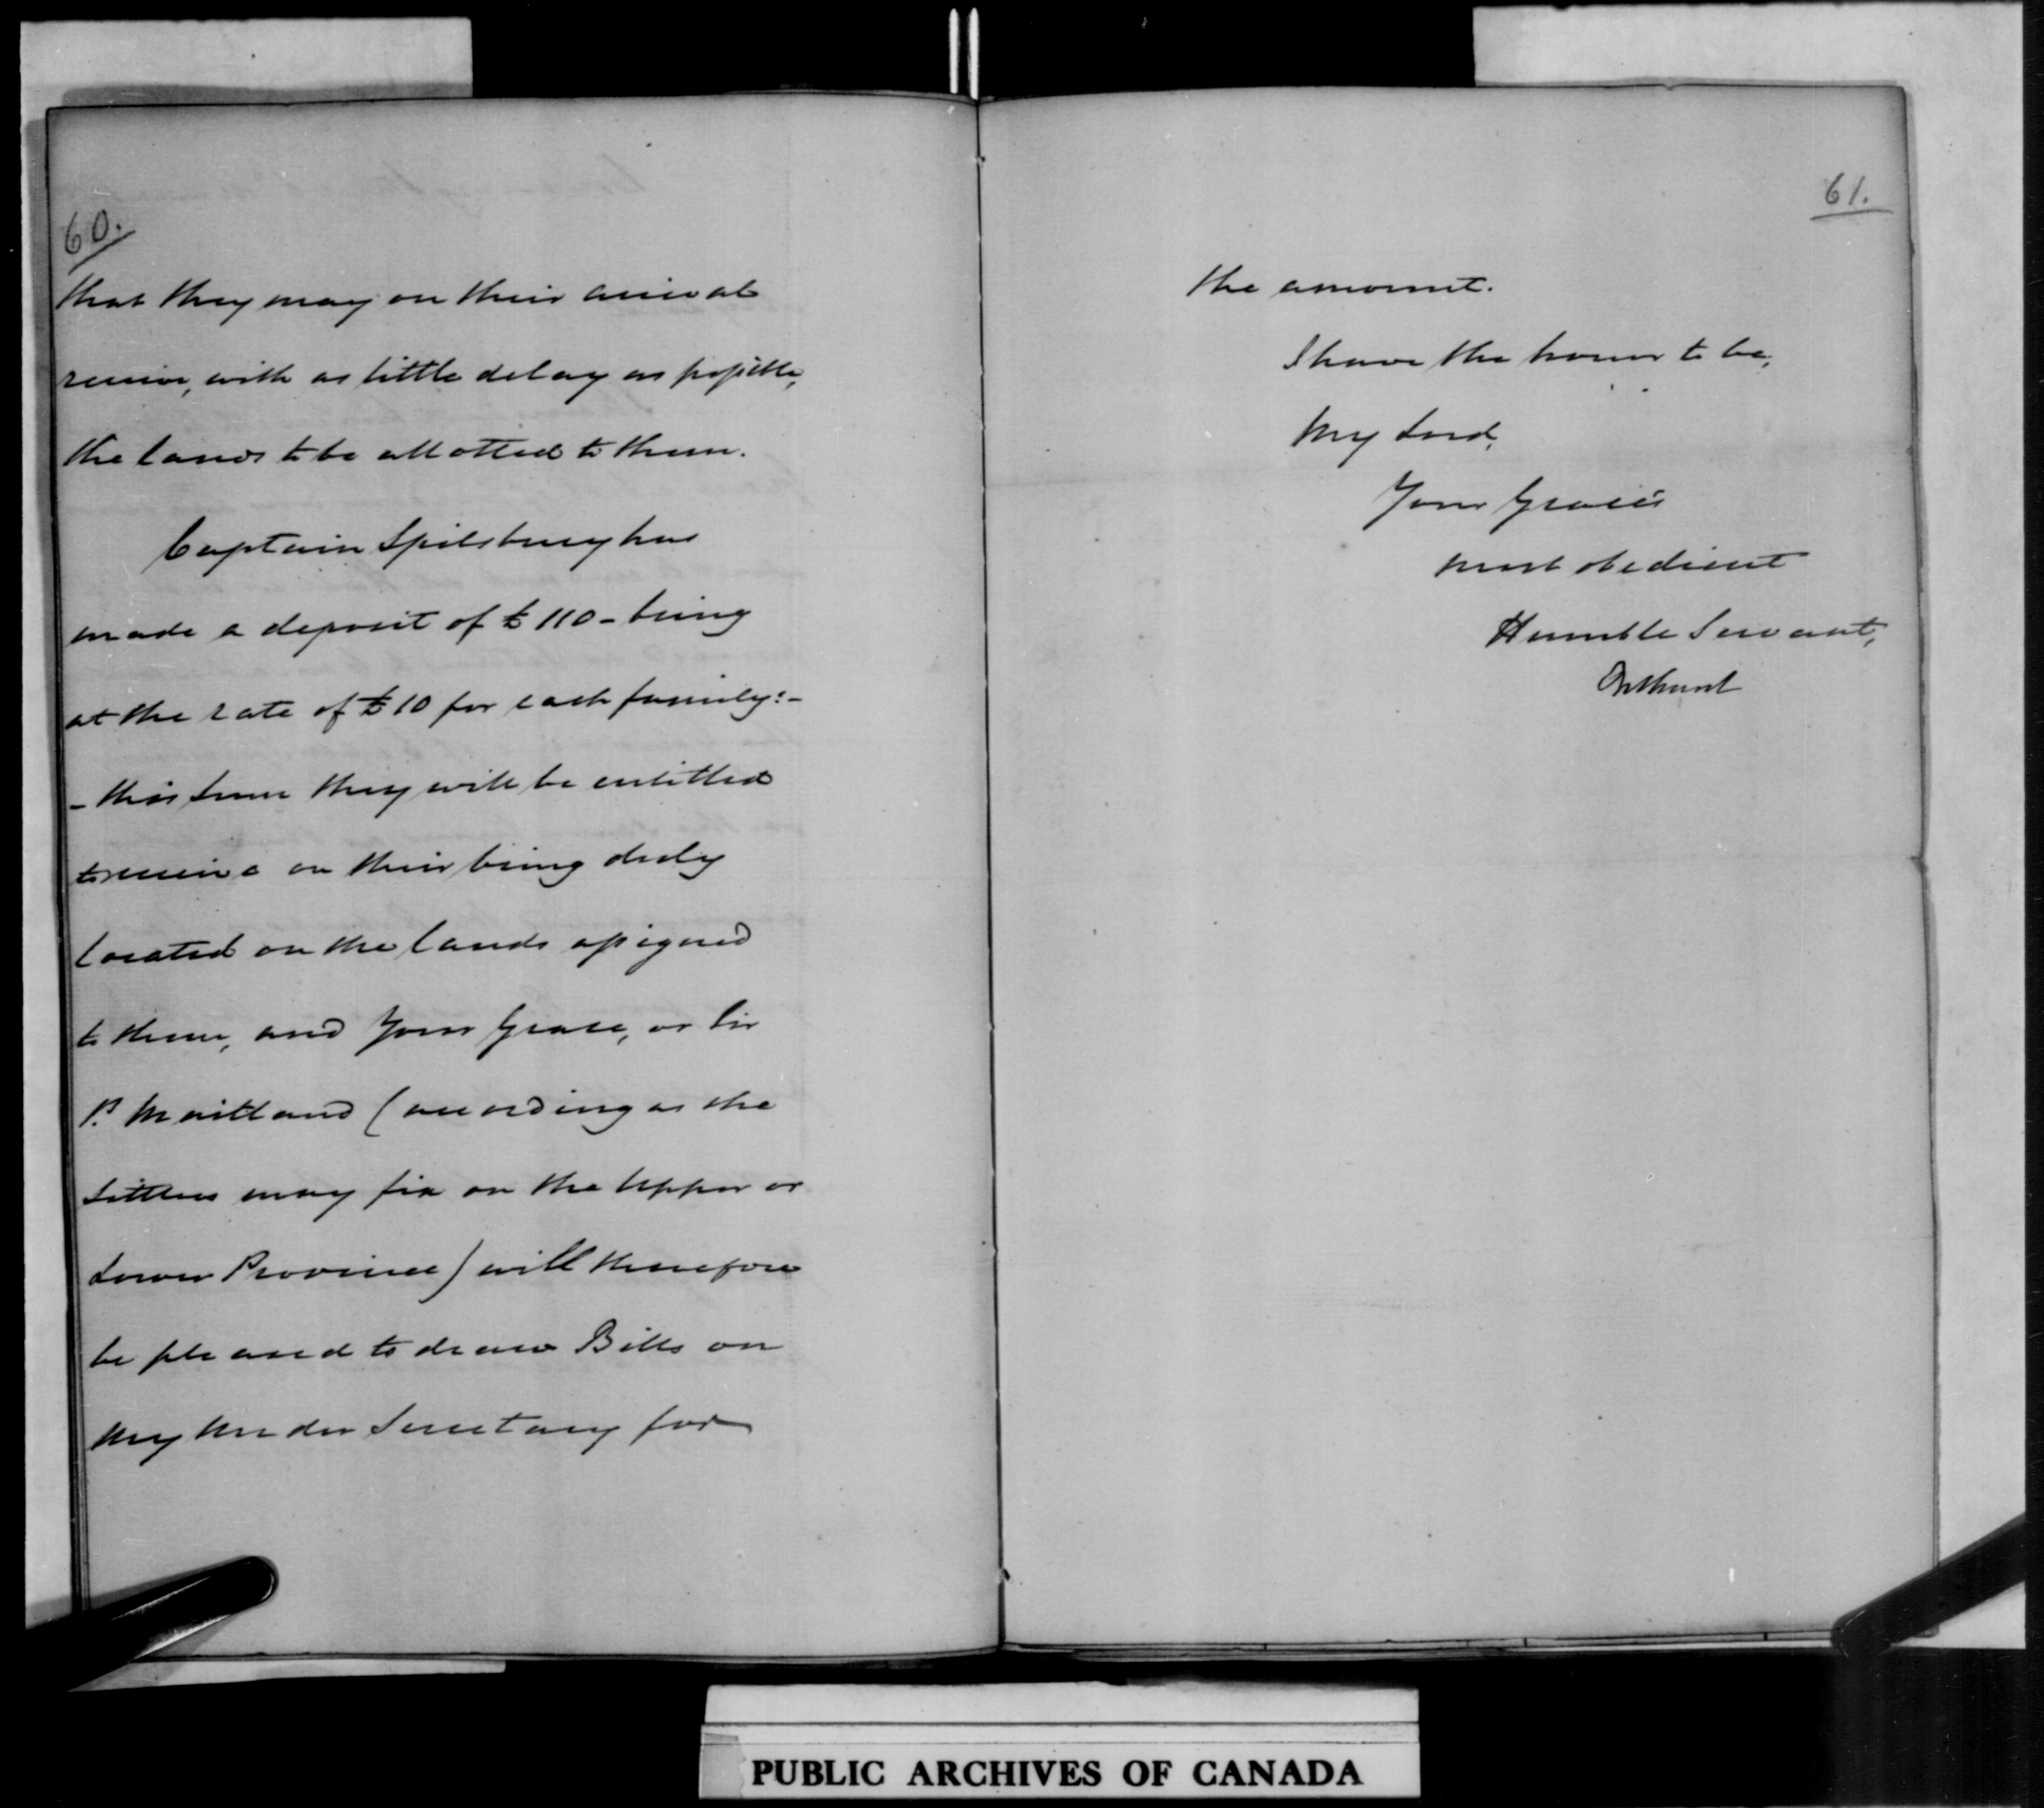 60.
that they may on their arrival
receive, with as little delay as possible,
the lands to be allotted to them.
Captain Spilsbury has
made a deposit of £110 - being
at the rate of £10 for each family:-
- this sum they will be entitled
to receive on their being duly
located on the lands assigned
to them, and Your Grace, or Sir
P. Maitland (according as the
Settlers may fix on the Upper or
Lower Province) will therefore
be pleased to draw Bills on
my Under Secretary for
61.
the amount.
I have the honor to be,
My Lord,
Your Grace's
most obedient
Humble Servant,
Bathurst
PUBLIC ARCHIVES OF CANADA